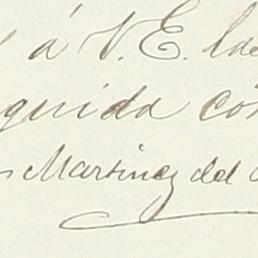 á V. E. las
guida con
Martinez del